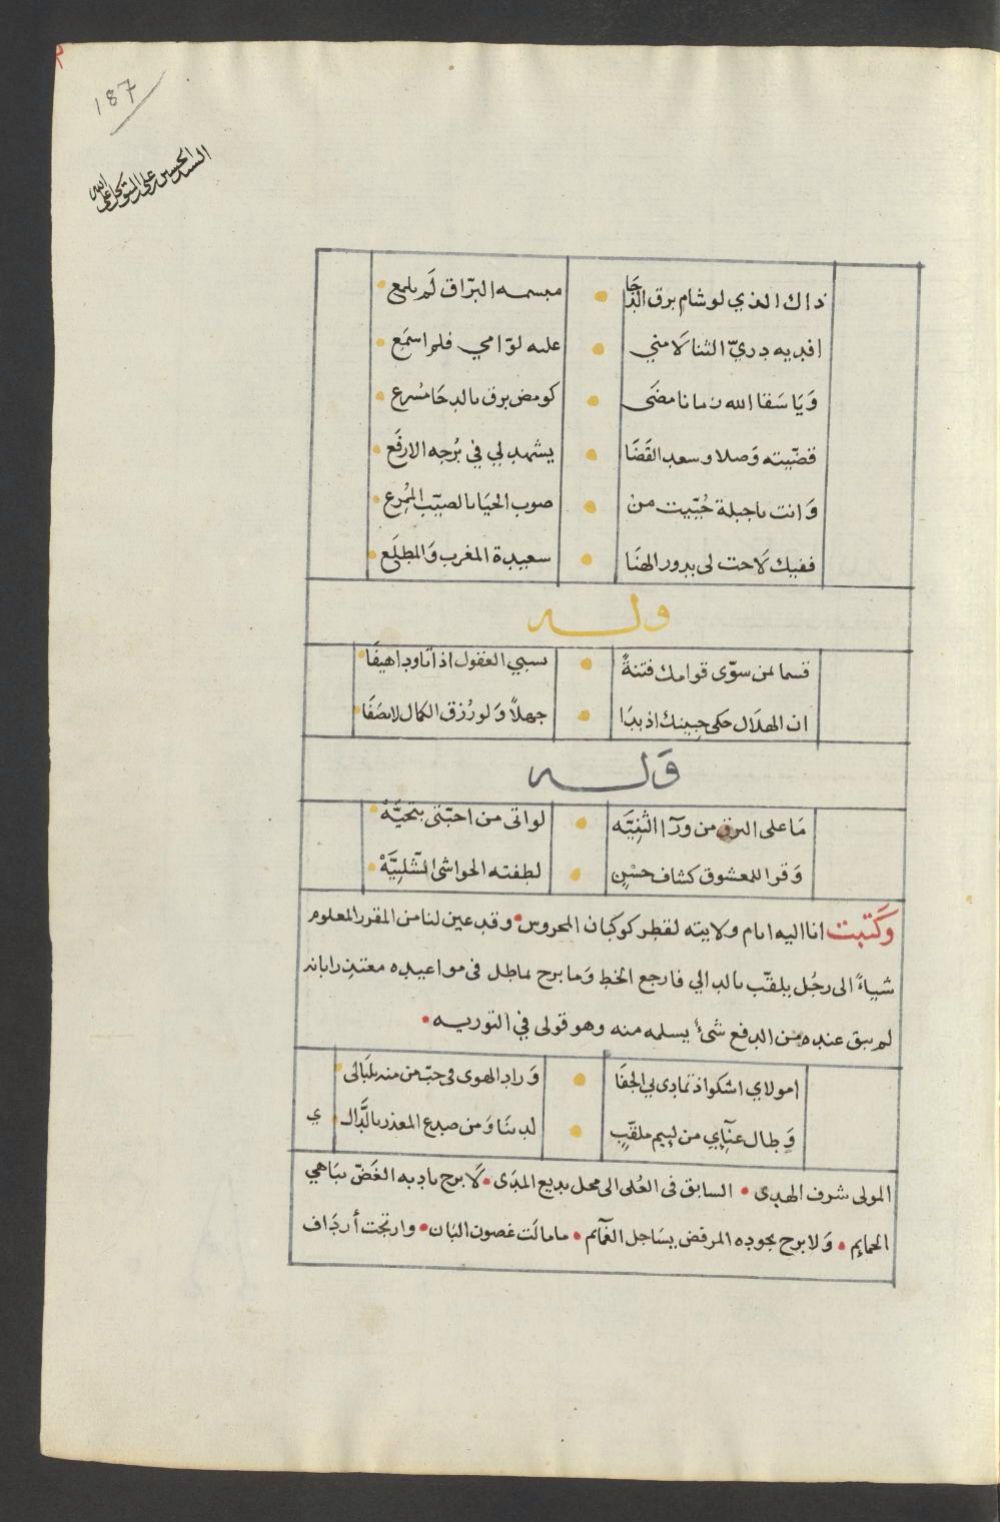 187
السيد الحسين بن علي المتوكل على الله
ذاك الذي لو شام برق الدجا • مبسمه البرّاق لَم يلمع
افديه دريّ الثنا لَامني • عليه لوّامي فلم اسمَع
وَيَا سَقا الله زمانا مضَى • كومض برق بالدجَا مسرع
قضّيته وَصلا وسعد القَضَا • يشهد لي في بُرجه الارفَع
وَانت ياجبلة حُيّيت منْ • صوب الحيَا بالصيّب المُمرع
ففيك لَاحت لى بدور الهنَا • سعيدة المغرب وَالمطلَع
وله
قسما بمن سوّى قوامك فتنةً • يسبي العقول اذا تاود اهيفَا
ان الهلَال حكى جبينك اذ بدَا • جهلاً وَلو رُزق الكمال لانصَفَا
وَله
مَا على البرق من ورَآ الثنِيَّه • لو اتى من احبّتى بتحيَّهْ
وَقرا للمعشوق كشاف حسْنٍ • لطفته الحواشى الشّلبيَّهْ
وَكتبت انا اليه ايام ولايته لقطر كوكبان المحروس • وقد عين لنا من المقرر المعلوم
شياءً الى رجُل يلقّب بالدالي فارجع الخط وَما برح يماطل فى مواعيده معتذرا بانه
لم يبق عنده من الدفع شىءٌ يسلمه منه وهو قولى في التوريه •
امولاي اشكو اذ تمادى بي الجفَا • وَزاد الهوى في حبّ من منه بلبَالى
وَطال عتَابي من لييم ملقّبٍ • لديننَا وَمن صدع المعذر بالدَّال ي
المولى شرف الهدى • السابق فى العُلى الى محل بديع المدَى • لَا برح بادبه الغَضّ يبَاهي
الحمايم • وَلا برح بجوده المرفض يسَاجل الغمَآيم • ما مالَت غصون البَان • وارتجت أردَاف